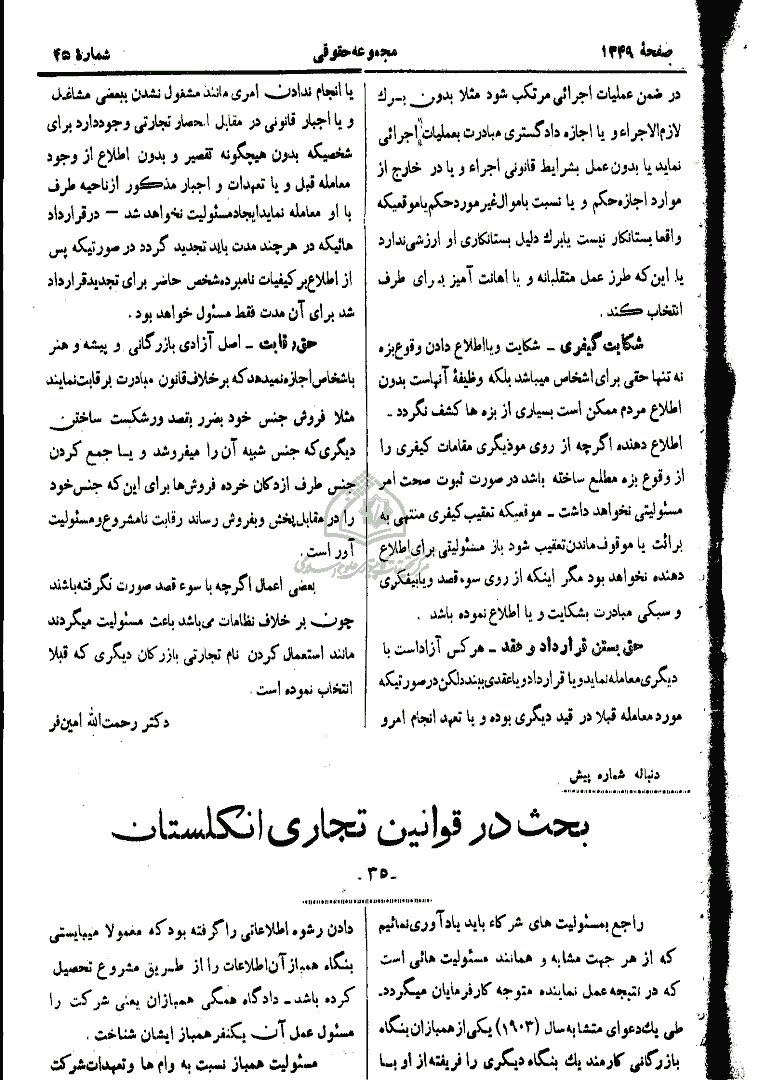 صفحهٔ ۱۳۴۹
مجموعه حقوقی
شمارهٔ ۴۵
در ضمن عملیات اجرائی مرتکب شود مثلا بدون برك
لازم‌الاجراء و یا اجازه دادگستری مبادرت بعملیات اجرائی
نماید یا بدون عمل بشرایط قانونی اجراء و یا در خارج از
موارد اجازه حکم و یا نسبت باموال غیر مورد حکم یا موقعیکه
واقعا بستانکار نیست یا برك دلیل بستانکاری او ارزشی ندارد
یا این‌که طرز عمل متقلبانه و یا اهانت آمیز برای طرف
انتخاب کند .
شکایت کیفری ـ شکایت و یا اطلاع دادن وقوع بزه
نه تنها حقی برای اشخاص میباشد بلکه وظیفهٔ آنهاست بدون
اطلاع مردم ممکن است بسیاری از بزه ها کشف نگردد ـ
اطلاع دهنده اگرچه از روی موذیگری مقامات کیفری را
از وقوع بزه مطلع ساخته باشد در صورت ثبوت صحت امر
مسئولیتی نخواهد داشت ـ موقعیکه تعقیب کیفری منتهی به
برائت یا موقوف ماندن تعقیب شود باز مسئولیتی برای اطلاع
دهنده نخواهد بود مگر اینکه از روی سوء قصد و یا بیفکری
و سبکی مبادرت بشکایت و یا اطلاع نموده باشد .
حق بستن قرارداد و عقد ـ هر کس آزاد است با
دیگری معامله نماید و یا قرارداد و یا عقدی ببندد لکن در صورتیکه
مورد معامله قبلا در قید دیگری بوده و یا تعهد انجام امر و
یا انجام ندادن امری مانند مشغول نشدن ببعضی مشاغل
و یا اجبار قانونی در مقابل انحصار تجارتی وجود دارد برای
شخصیکه بدون هیچگونه تقصیر و بدون اطلاع از وجود
معامله قبل و یا تعهدات و اجبار مذکور از ناحیه طرف
با او معامله نماید ایجاد مسئولیت نخواهد شد — در قرارداد
هائیکه در هر چند مدت باید تجدید گردد در صورتیکه پس
از اطلاع بر کیفیات نامبرده شخص حاضر برای تجدید قرارداد
شد برای آن مدت فقط مسئول خواهد بود .
حق رقابت ـ اصل آزادی بازرگانی و پیشه و هنر
باشخاص اجازه نمیدهد که برخلاف قانون مبادرت برقابت نمایند
مثلا فروش جنس خود بضرر بقصد ورشکست ساختن
دیگری که جنس شبیه آن را میفروشد و یا جمع کردن
جنس طرف از دکان خرده فروش‌ها برای این که جنس خود
را در مقابل پخش و بفروش رساند رقابت نامشروع و مسئولیت
آور است .
بعضی اعمال اگرچه با سوء قصد صورت نگرفته باشند
چون بر خلاف نظامات می‌باشد باعث مسئولیت میگردند
مانند استعمال کردن نام تجارتی بازرکان دیگری که قبلا
انتخاب نموده است .
دکتر رحمت‌الله امین‌فر
دنباله شماره پیش
بحث در قوانین تجاری انکلستان
ـ ۳۵ ـ
راجع بمسئولیت های شرکاء باید یادآوری نمائیم
که از هر جهت مشابه و همانند مسئولیت هائی است
که در نتیجه عمل نماینده متوجه کارفرمایان میگردد.
طی یك دعوای متشابه سال (۱۹۰۳) یکی از همبازان بنگاه
بازرگانی کارمند یك بنگاه دیگری را فریفته از او بسا
دادن رشوه اطلاعاتی را گرفته بود که معمولا میبایستی
بنگاه همباز آن اطلاعات را از طریق مشروع تحصیل
کرده باشد ـ دادگاه همگی همبازان یعنی شرکت را
مسئول عمل آن یکنفر همباز ایشان شناخت .
مسئولیت همباز نسبت به وام ها و تعهدات شرکت